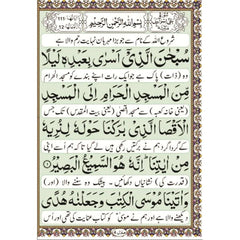 بسم الله الرحمن الرحيم
شروع اللہ کے نام سے جو بڑا مہربان نہایت رحم والا ہے
سُبْحٰنَ الَّذِيْٓ اَسْرٰى بِعَبْدِهٖ لَيْلًا
وہ (ذات) پاک ہے جو ایک رات اپنے بندے کو مسجد الحرام
مِّنَ الْمَسْجِدِ الْحَرَامِ اِلَى الْمَسْجِدِ
یعنی (خانہ کعبہ) سے مسجد اقصیٰ (یعنی بیت المقدس) تک جس
الْاَقْصَا الَّذِيْ بٰرَكْنَا حَوْلَهٗ لِنُرِيَهٗ
کے گردا گرد ہم نے برکتیں رکھی ہیں لے گیا تاکہ ہم اسے اپنی
مِنْ اٰيٰتِنَا ۭ اِنَّهٗ هُوَ السَّمِيْعُ الْبَصِيْرُ
(قدرت کی) نشانیاں دکھائیں۔ بیشک وہ سننے والا (اور)
وَاٰتَيْنَا مُوْسَى الْكِتٰبَ وَجَعَلْنٰهُ هُدًى
دیکھنے والا ہے اور ہم نے موسیٰ کو کتاب عنایت کی تھی اور اس